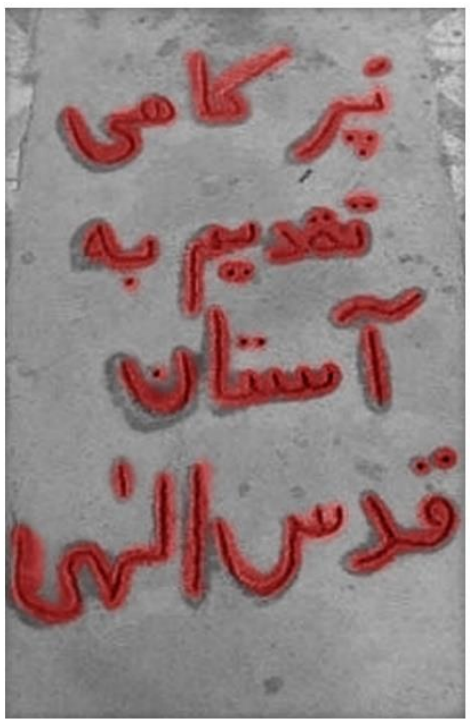 پَر کاهی
تقدیم به
آستان
قدس الٰهی